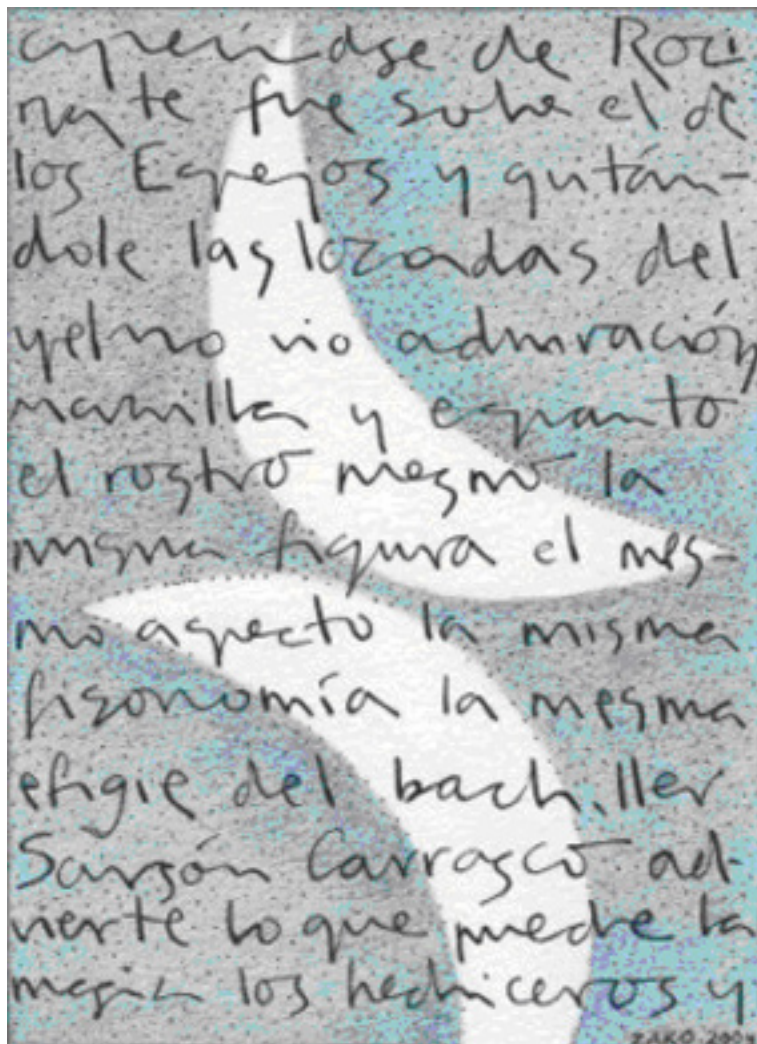 apeándose de Roci
nante fue sobre el de
los Espejos y quitán-
dole las lazadas del
yelmo vio admiración
maravilla y espanto
el rostro mesmo la
misma figura el mes-
mo aspecto la misma
fisonomía la mesma
efigie del bachiller
Sansón Carrasco ad-
vierte lo que puede la
magia los hechiceros y
ZAKO.2004